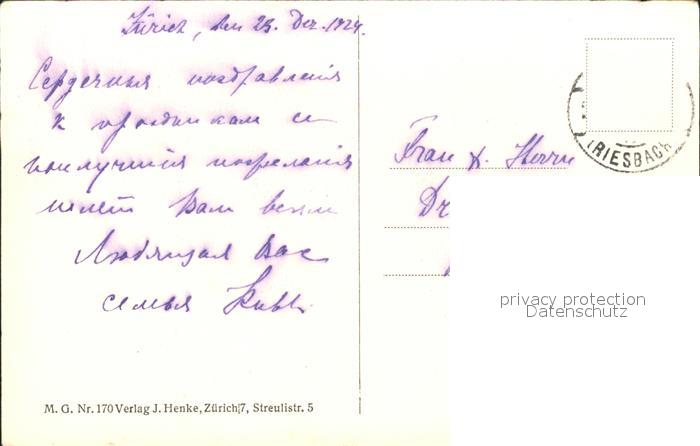 Zürich, den 23. Dez. 1924.
Сердечныя поздравленія
к праздникам и
наилучшія пожеланія
шлет Вам всѣм
Любящая Вас
семья
Frau & Herrn
Dr
RIESBACH
privacy protection
Datenschutz
M. G. Nr. 170 Verlag J. Henke, Zürich 7, Streulistr. 5